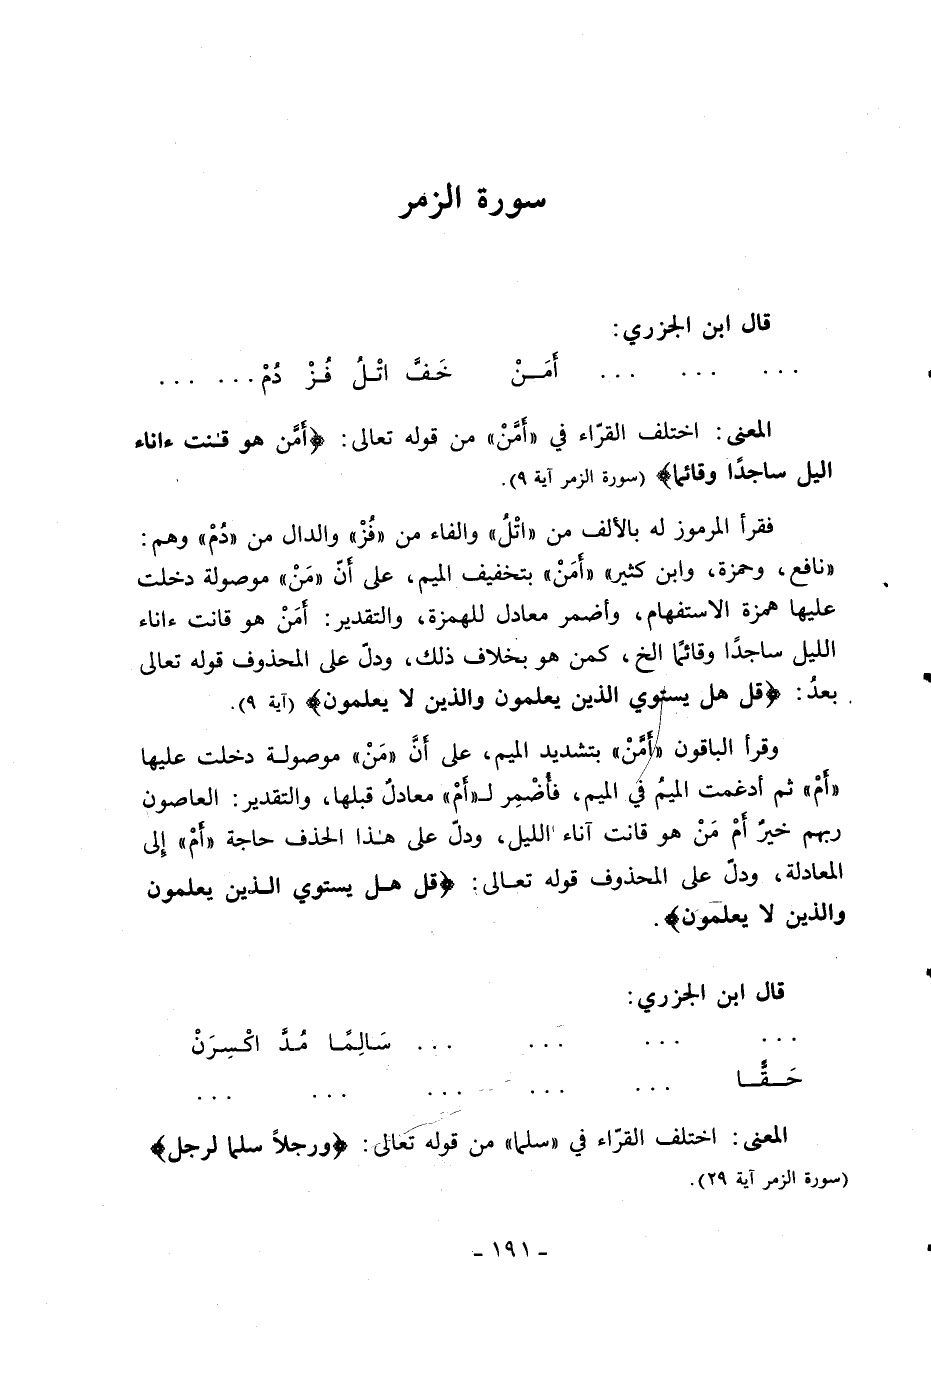 سورة الزمر
قال ابن الجزري:
... ... ... أَمَـنْ خَـفَّ اتْـلُ فُـزْ دُمْ... ...
المعنى: اختلف القرّاء في «أَمَّنْ» من قوله تعالى: ﴿أَمَّن هو قٰنت ءاناء
اليل ساجدًا وقائما﴾ (سورة الزمر آية ٩).
فقرأ المرموز له بالألف من «اتْلُ» والفاء من «فُزْ» والدال من «دُمْ» وهم:
«نافع، وحمزة، وابن كثير» «أَمَنْ» بتخفيف الميم، على أَنّ «مَنْ» موصولة دخلت
عليها همزة الاستفهام، وأضمر معادل للهمزة، والتقدير: أَمَنْ هو قانت ءاناء
الليل ساجدًا وقائمًا الخ، كمن هو بخلاف ذلك، ودلّ على المحذوف قوله تعالى
بعدُ: ﴿قل هل يستوي الذين يعلمون والذين لا يعلمون﴾ (آية ٩).
وقرأ الباقون «أَمَّنْ» بتشديد الميم، على أَنَّ «مَنْ» موصولـة دخلت عليها
«أَمْ» ثم أدغمت الميمُ في الميم، فأُضْمِر لـ«أَمْ» معادلٌ قبلها، والتقدير: العاصون
ربهم خيرٌ أَمْ مَنْ هو قانت آناء الليل، ودلّ على هـٰذا الحذف حاجة «أَمْ» إِلى
المعادلة، ودلّ على المحذوف قوله تعـالى: ﴿قل هـل يستوي الـذين يعلمون
والذين لا يعلمون﴾.
قال ابن الجزري:
... ... ... ... سَـالِمًـا مُـدَّ اكْـسِـرَنْ
حَـقًّـا ... ... ... ... ...
المعنى: اختلف القرّاء في «سلما» من قوله تعالى: ﴿ورجلاً سلما لرجل﴾
(سورة الزمر آية ٢٩).
- ١٩١ -